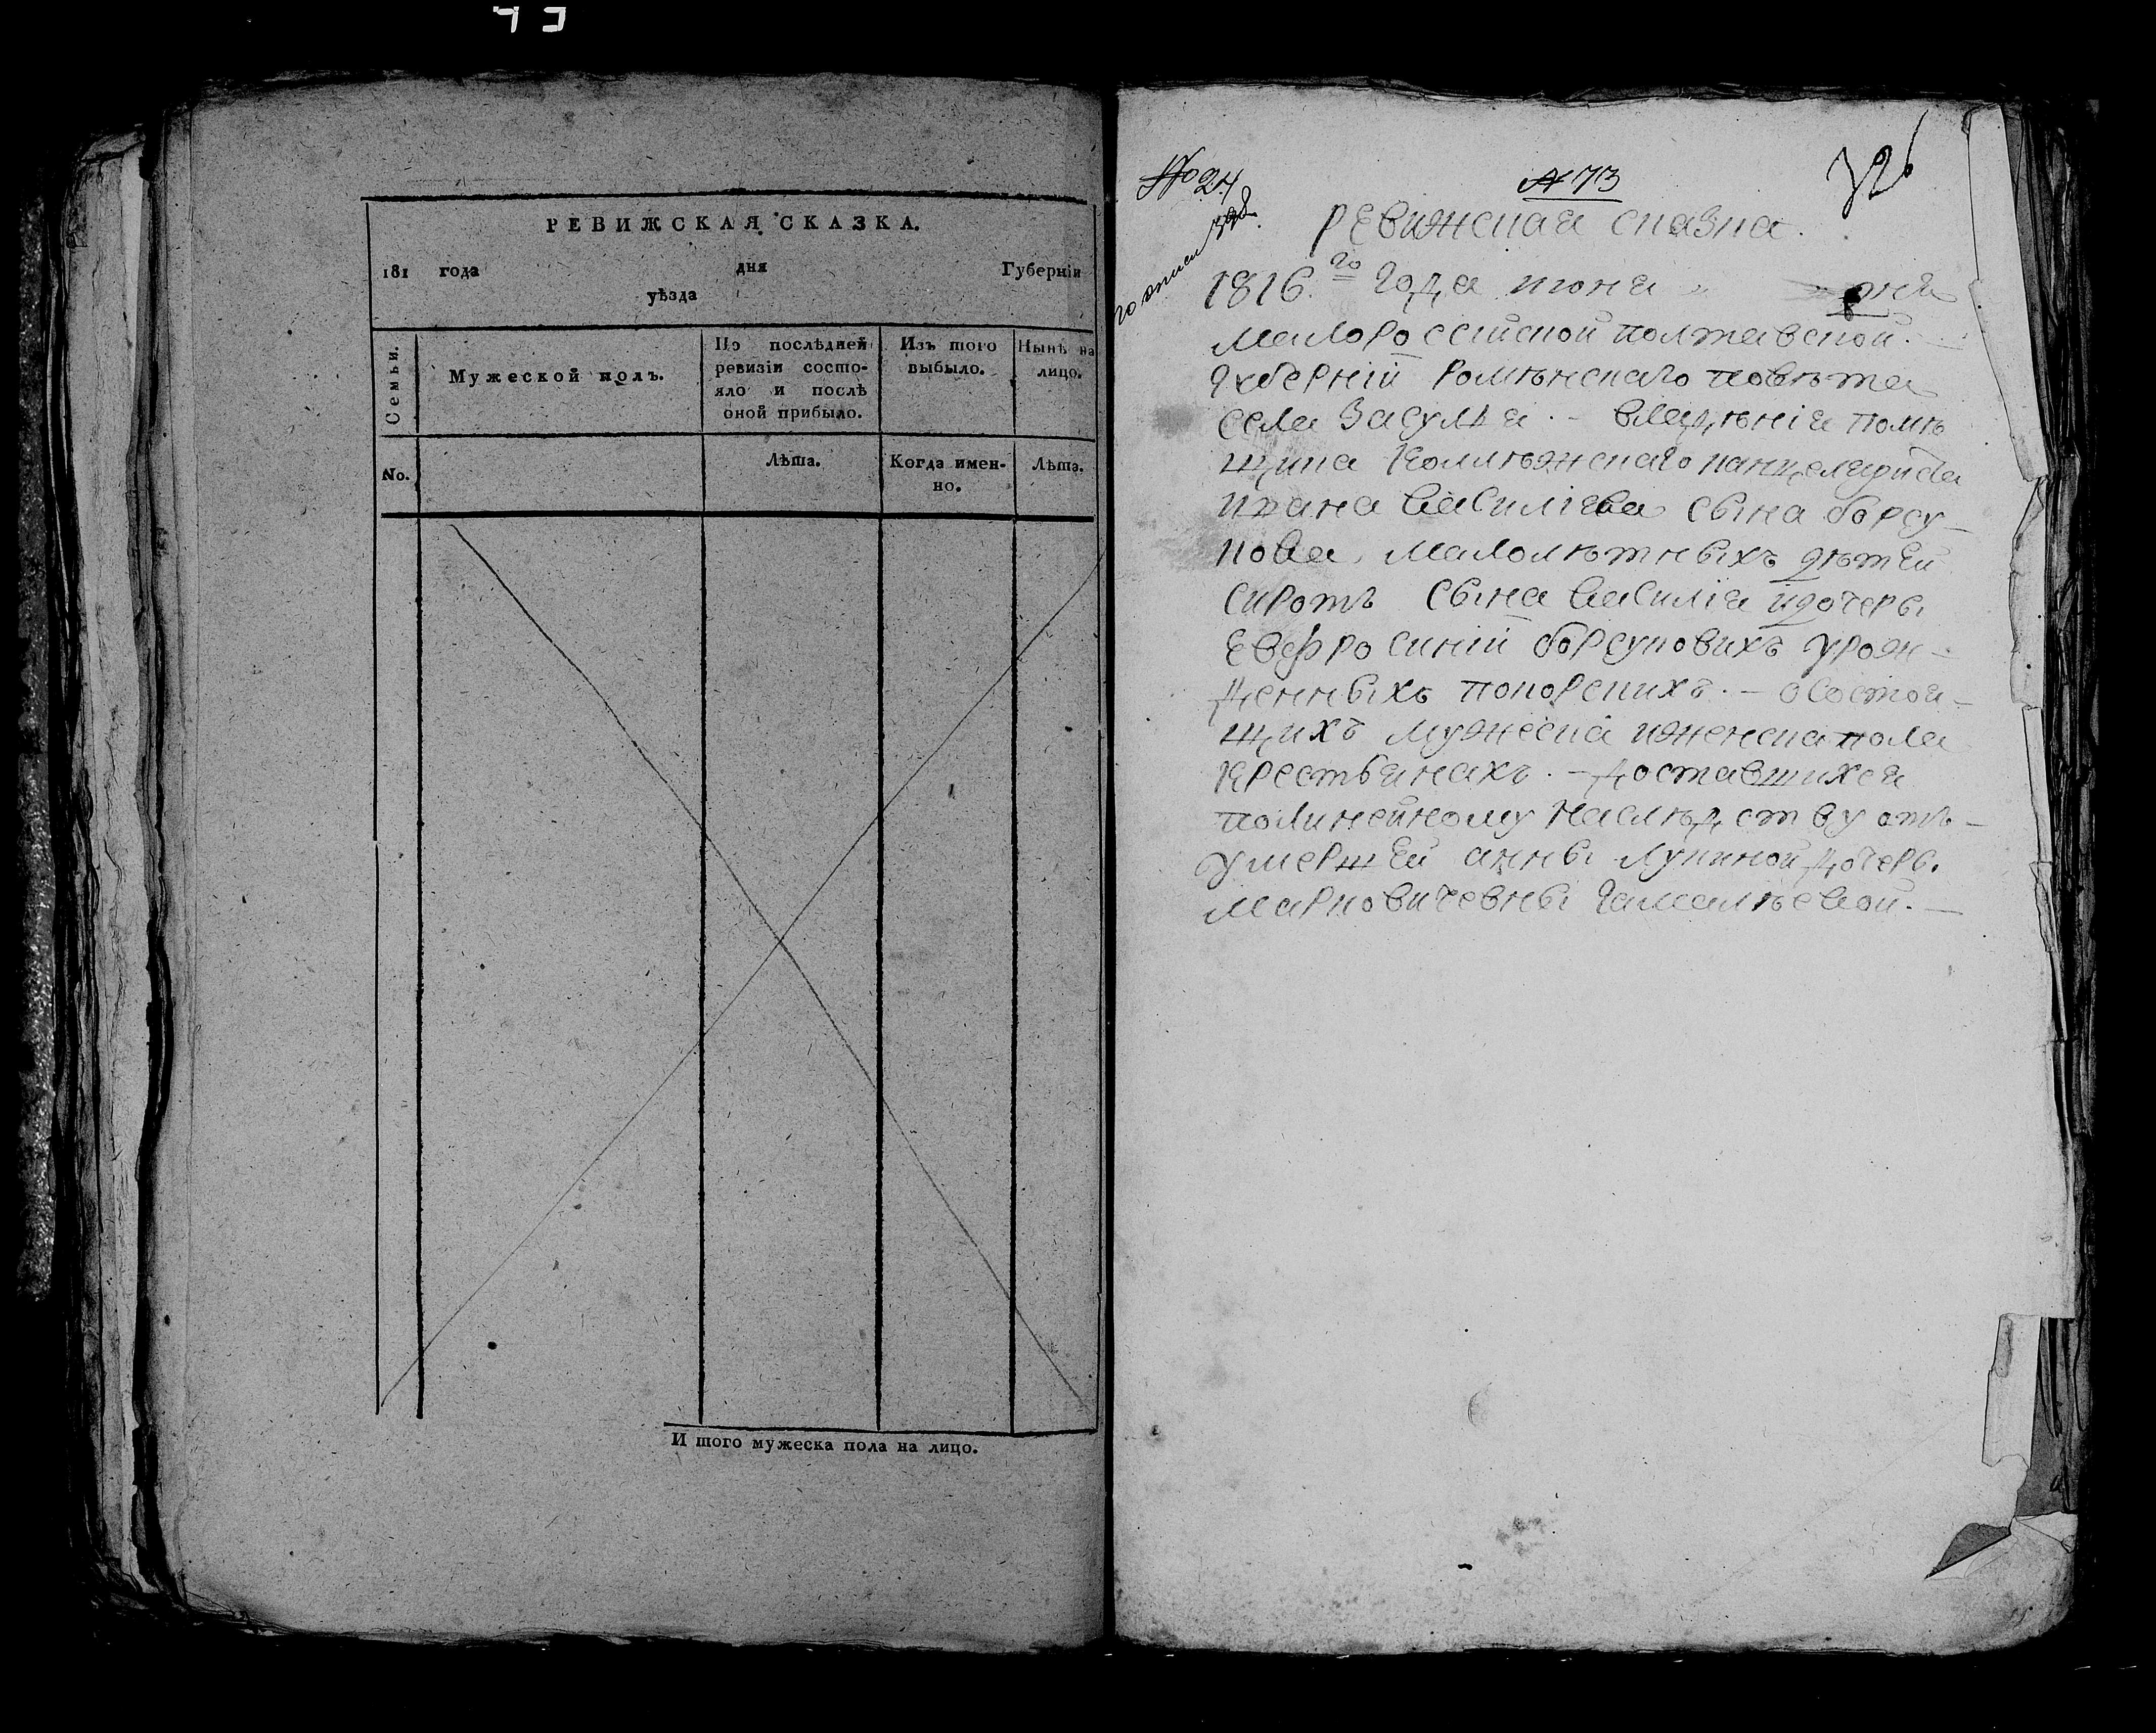 РЕВИЖСКАЯ СКАЗКА.
181 года дня Губерніи
уѣзда
Семьи.
Мужеской полъ.
По послѣдней ревизіи состо-
яло и послѣ
оной прибыло.
Изъ того
выбыло.
Нынѣ на
лицо.
No.
Лѣта.
Когда имен-
но.
Лѣта.
И того мужеска пола на лицо.
No 24
№ 73
326
ревижская сказка.
1816.го года июня " " дня
малороссійской полтавской
губерніи роменскаго повѣта
села Засулья. - владѣнія помѣ
щика Коллѣжскаго канцеляриста
ивана василіева сына борсу-
кова малолѣтныхъ дѣтей
сиротъ сына василія идочеры
Евфросиніи борсуковихъ урож-
денныхъ покорскихъ. - осостоя-
щихъ мужеска иженска пола
крестьянахъ. - доставшихся
полинейному наслѣдству отъ-
умершей анны лукиной дочери
марковичевны гамалѣевой. -